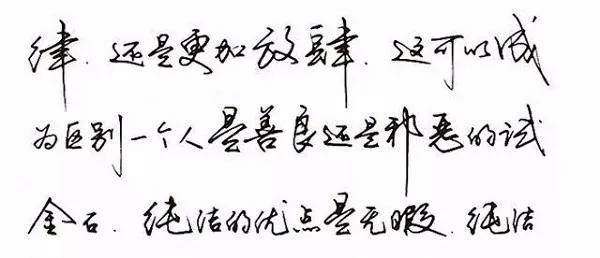 律.还是更加放肆.这可以成
为区别一个人是善良还是邪恶的试
金石.纯洁的优点是无暇.纯洁